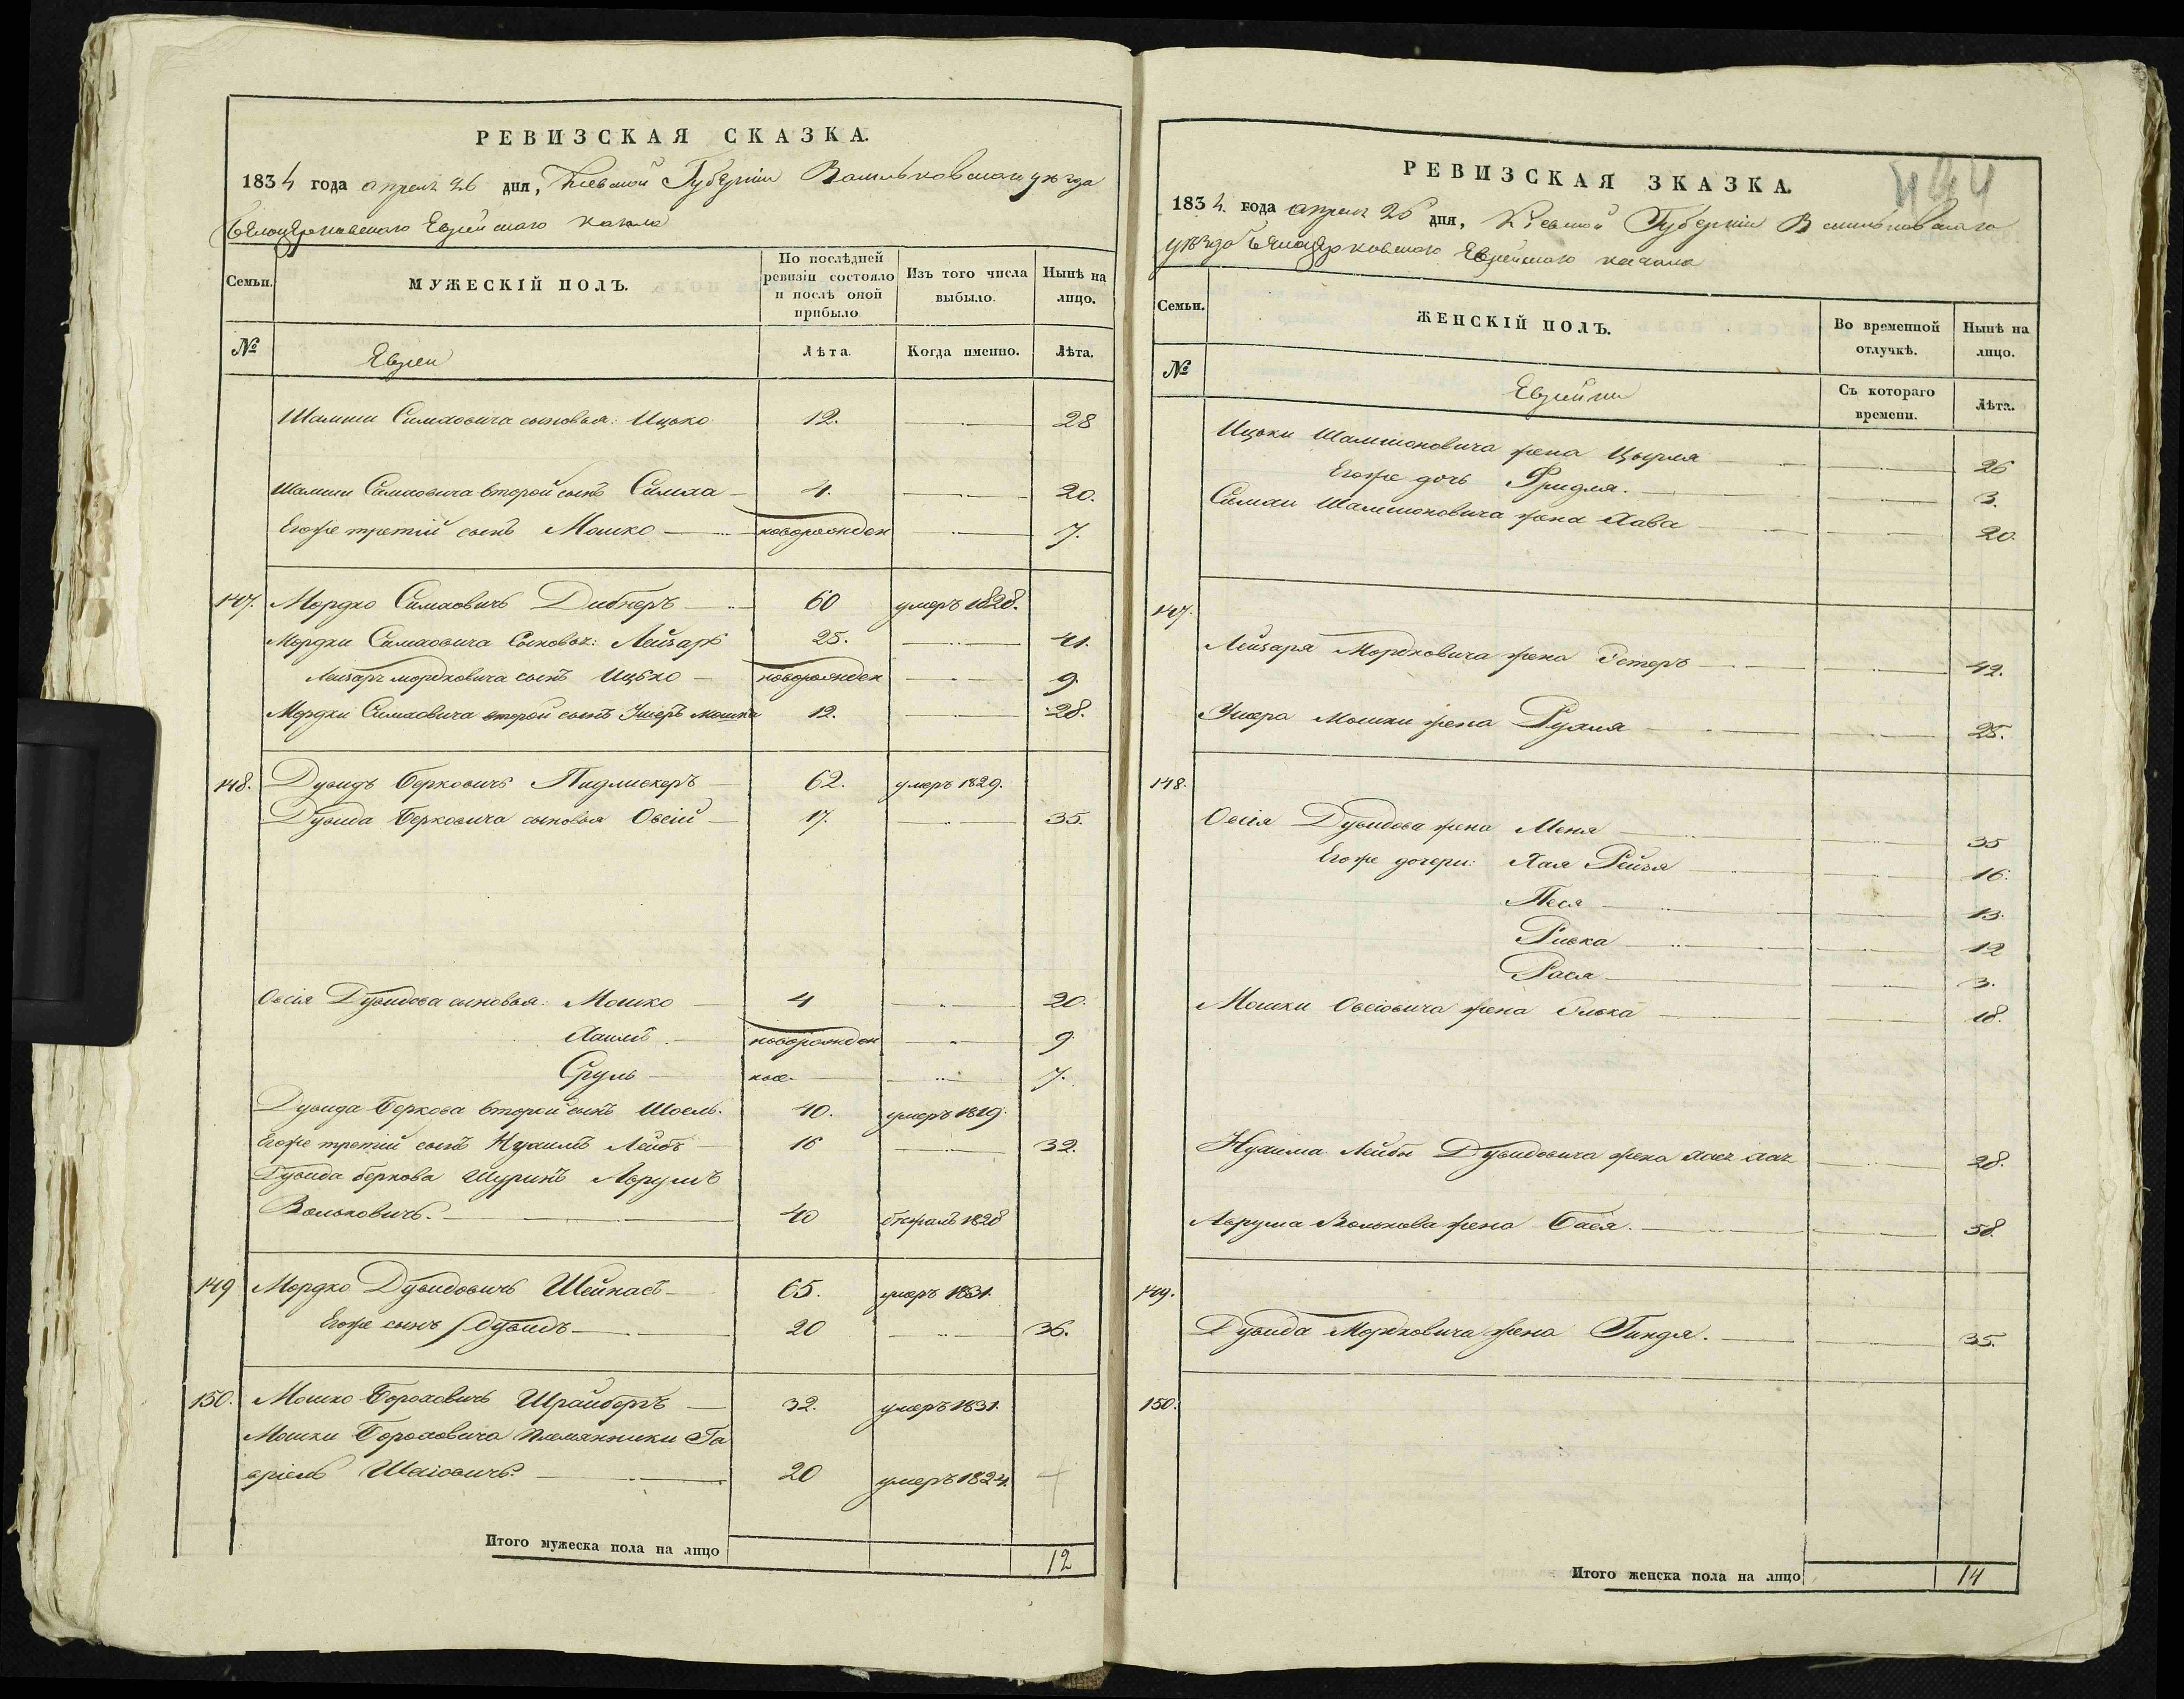 РЕВИЗСКАЯ СКАЗКА.
1834 года апреля 26 дня, Киевской Губерніи Васильковскаго уезда
Белоцерковскаго Еврейскаго кагала
Семьи.
МУЖЕСКІЙ ПОЛЪ.
По послѣдней ревизіи состояло и послѣ оной прибыло
Изъ того числа выбыло.
Нынѣ на лицо.
№
Евреи
Лѣта.
Когда именно.
Лѣта.
Симховича сыновья: Ицько 12. 28
Симховича второй сынъ Симха 4. 20.
Егоже третій сынъ Мошко новорожден 7.
147. Мордко Симховичъ 60 умеръ 1828.
Мордки Симховича Сыновья: Лейзаръ 25. 41.
Лейзаръ мордковича сынъ Ицько новорожден 9
Мордки Симховича второй сынъ Ушеръ Мошка 12. 28.
148. Дувидъ Берковичъ 62. умеръ 1829.
Дувида Берковича сыновья Овсій 17. 35.
Овсія Дувидова сыновья: Мошко 4 20.
Хаимъ новорожден 9
Сруль нов. 7.
Дувида Беркова второй сынъ Шоель. 40. умеръ 1829.
Егоже третій сынъ Нухимъ Лейбъ 16 32.
Дувида беркова Шуринъ Аврумъ
Вольковичъ. 40 1828
149 Мордко Дувидовичъ 65. умеръ 1831.
Егоже сынъ Дувидъ 20 36.
150. Мошко Бороховичъ Шрайберъ 32. умеръ 1831.
Мошки Бороховича племянники Га
вріель 20 умеръ 1824.
Итого мужеска пола на лицо 12
РЕВИЗСКАЯ ЗКАЗКА.
1834. года апреля 26 дня, Киевской Губерніи Васильковскаго
уезда Белоцерковскаго Еврейскаго кагала
Семьи.
ЖЕНСКІЙ ПОЛЪ.
Во временной отлучкѣ.
Нынѣ на лицо.
№
Еврейки
Съ котораго времени.
Лѣта.
Ицьки Шамшоновича жена Цырля 26
Егоже дочь Фридля. 3.
Симхи Шамшоновича жена Хава 20.
147.
Лейзаря Мордковича жена Эстеръ 42.
Ушера Мошки жена Рухля 25.
148.
Овсія Дувидова жена Меня 35
Егоже дочери: Хая Рейзя 16.
Песя 13.
Ривка 12
Рася 3.
Мошки Овсіовича жена 18.
Нухима Лейбы Дувидовича жена 28.
Аврума Волькова жена Бася. 58.
149.
Дувида Мордковича жена Гиндя. 35.
150.
Итого женска пола на лицо 14